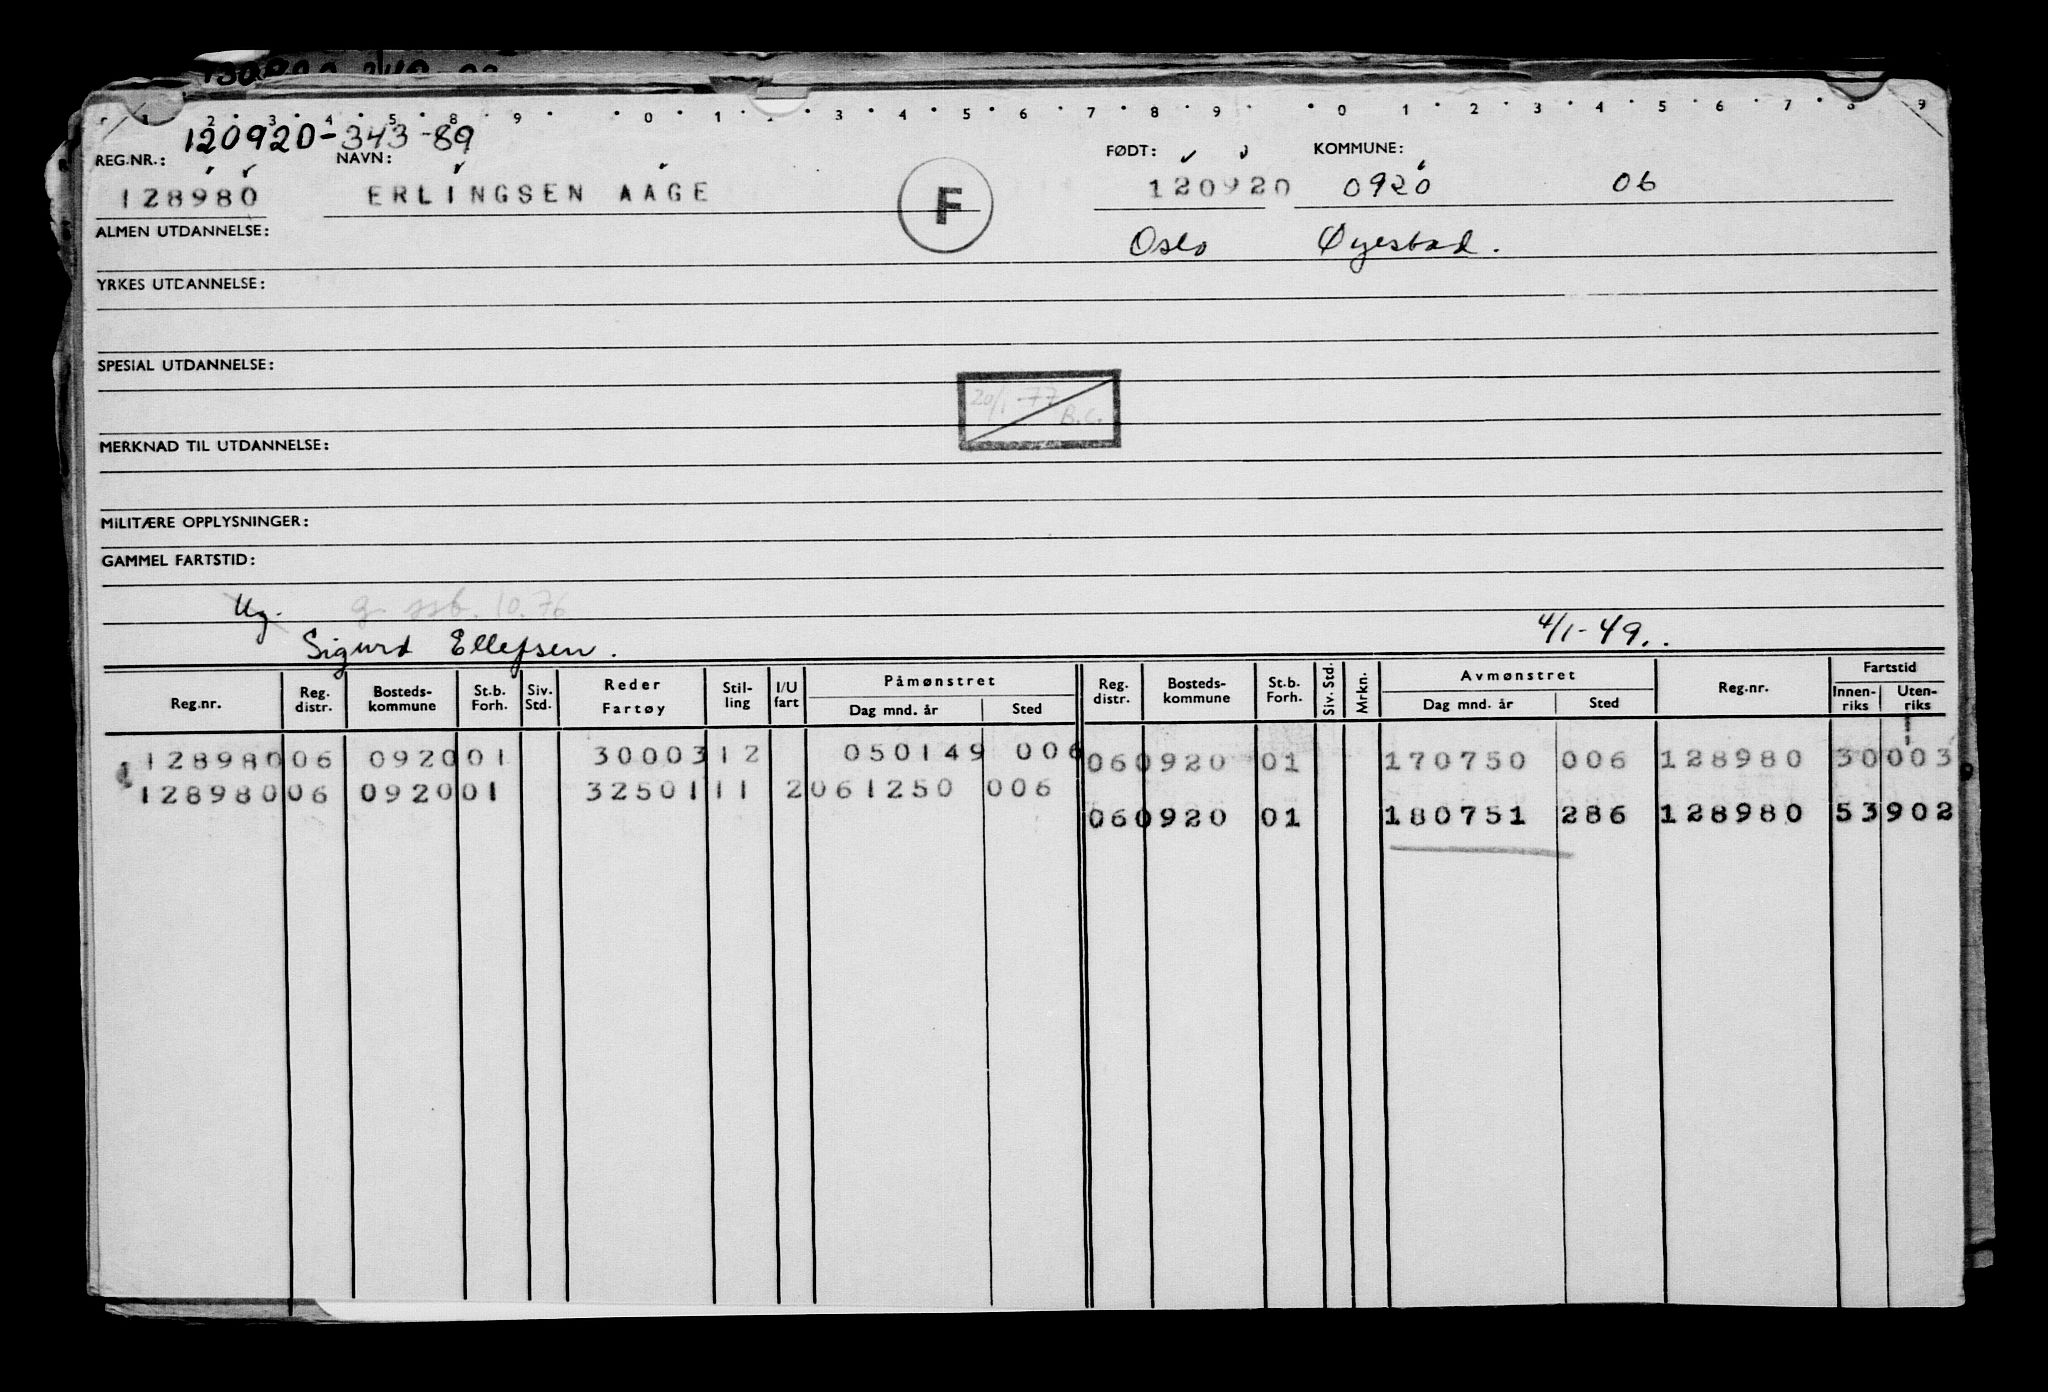 1 2 3 4 5 8 9 0 1 3 4 5 6 7 8 9 0 1 2 3 4 5 6 7 8 9
120920-343-89
REG.NR.: NAVN: FØDT: KOMMUNE:
128980 ERLINGSEN AAGE F 120920 0920 06
ALMEN UTDANNELSE: Oslo Øyestad.
YRKES UTDANNELSE:
SPESIAL UTDANNELSE:
20/1-77 B.C.
MERKNAD TIL UTDANNELSE:
MILITÆRE OPPLYSNINGER:
GAMMEL FARTSTID:
Ug. g. ssb. 10.76
Sigurd Ellefsen. 4/1-49.
Reg.nr. Reg. distr. Bosteds-kommune St.b. Forh. Siv. Std. Reder Fartøy Stil-ling I/U fart Påmønstret Dag mnd. år Sted Reg. distr. Bosteds-kommune St.b. Forh. Siv. Std. Mrkn. Avmønstret Dag mnd. år Sted Reg.nr. Fartstid Innen-riks Uten-riks
128980 06 0920 01 30003 12 050149 006 06 0920 01 170750 006 128980 30 003
128980 06 0920 01 32501 11 2 061250 006
06 0920 01 180751 286 128980 53 902